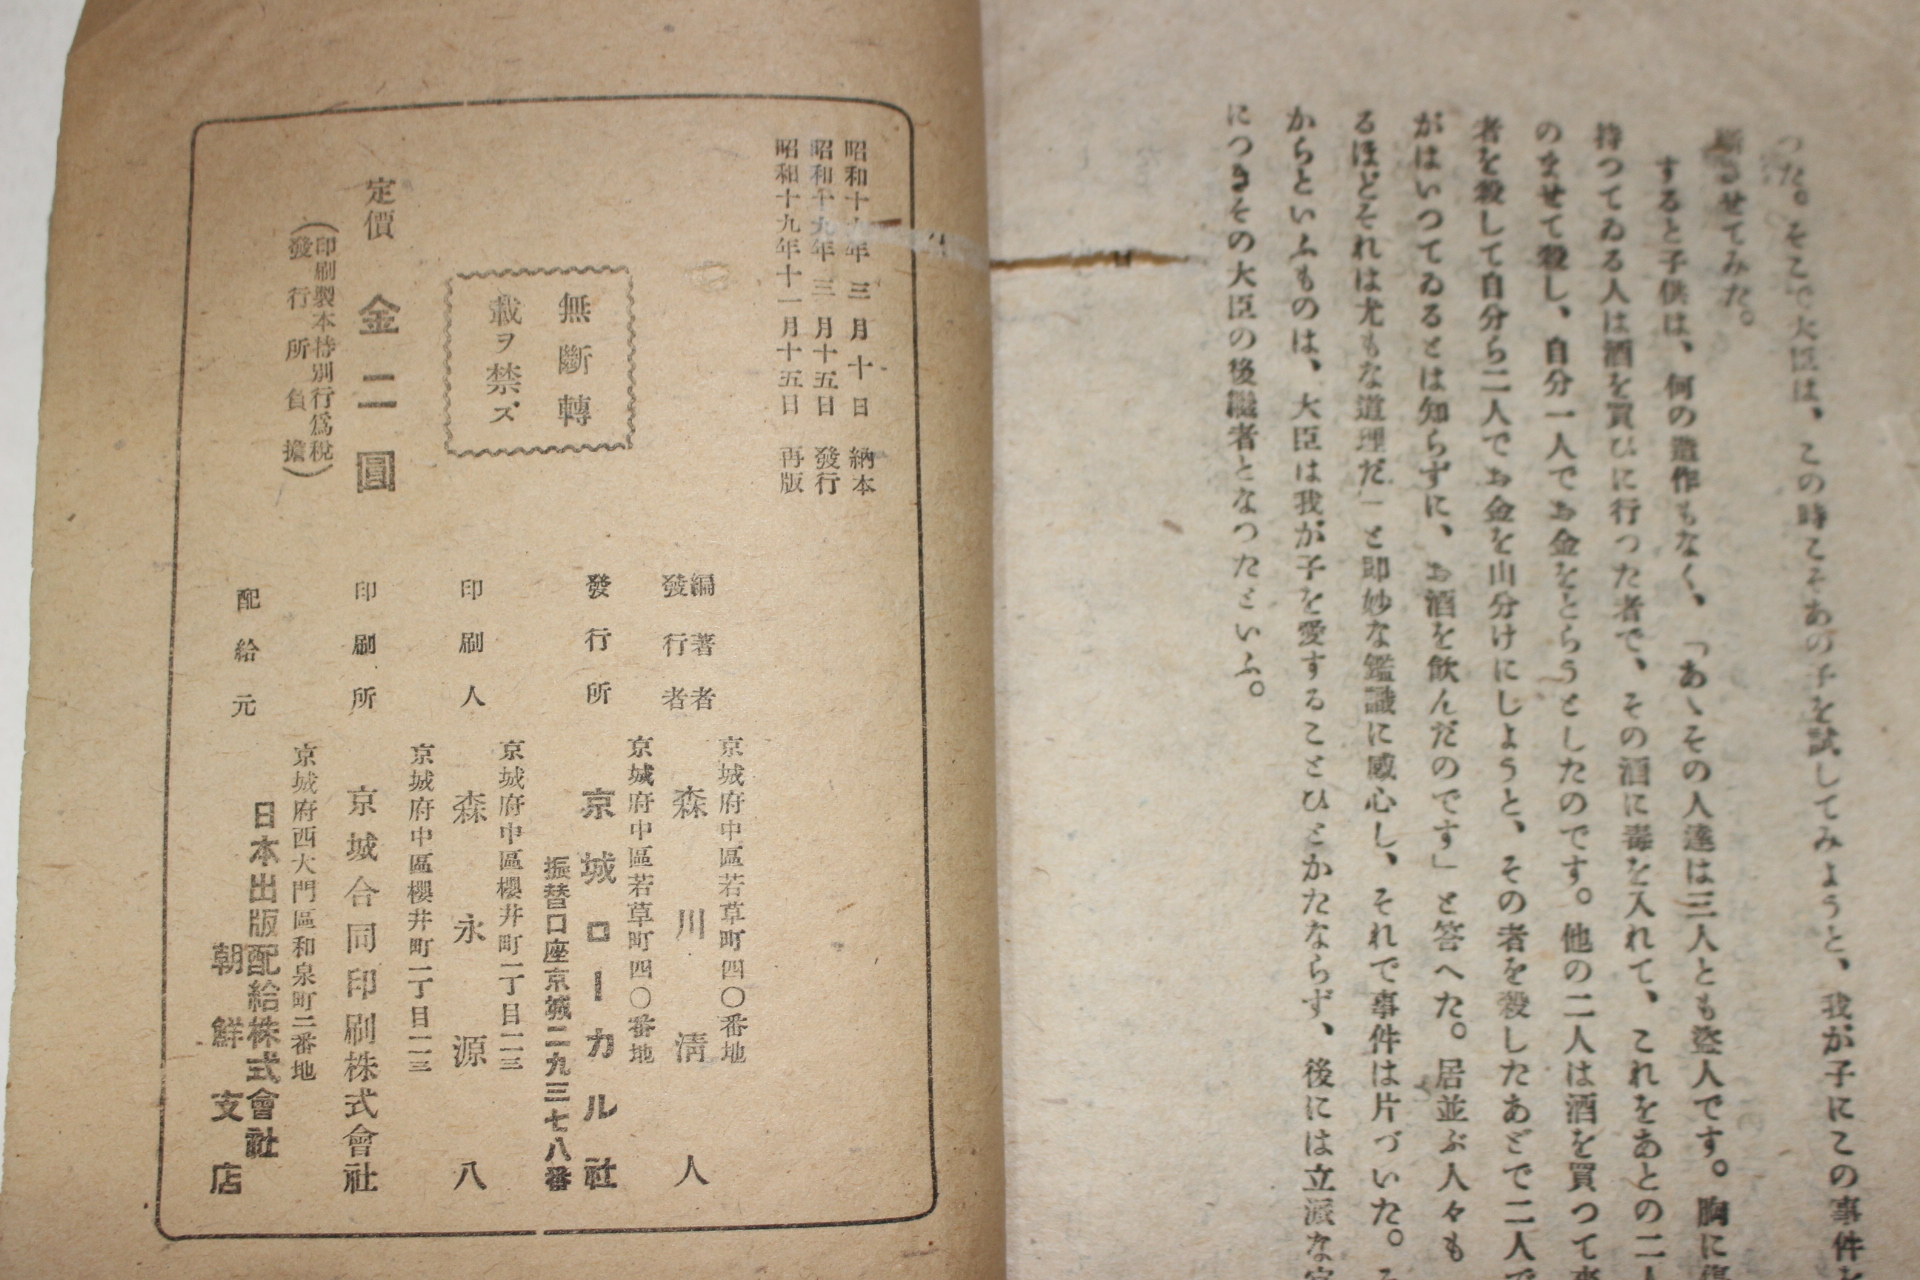 つた。そこで大臣は、この時こそあの子を試してみようと、我が子にこの事件を
断らせてみた。
すると子供は、何の造作もなく、「あゝその人達は三人とも盗人です。胸に傷
持つてゐる人は酒を買ひに行つた者で、その酒に毒を入れて、これをあとの二人
のませて殺し、自分一人でお金をとらうとしたのです。他の二人は酒を買つて来
者を殺して自分ら二人でお金を山分けにしようと、その者を殺したあとで二人で
がはいつてゐるとは知らずに、お酒を飲んだのです」と答へた。居並ぶ人々も
るほどそれは尤もな道理だ」と即妙な鑑識に感心し、それで事件は片づいた。そ
からといふものは、大臣は我が子を愛することひとかたならず、後には立派な官
につきその大臣の後繼者となつたといふ。
昭和十九年三月十日 納本
昭和十九年三月十五日 發行
昭和十九年十一月十五日 再版
無斷轉
載ヲ禁ズ
定價 金二圓
(印刷製本特別行爲税
發行所負擔)
京城府中區若草町四〇番地
編著者
發行者 森川清人
京城府中區若草町四〇番地
發行所 京城ローカル社
振替口座京城二九三七八番
京城府中區櫻井町一丁目一二三
印刷人 森永源八
京城府中區櫻井町一丁目一二三
印刷所 京城合同印刷株式會社
京城府西大門區和泉町二番地
配給元 日本出版配給株式會社
朝鮮支店